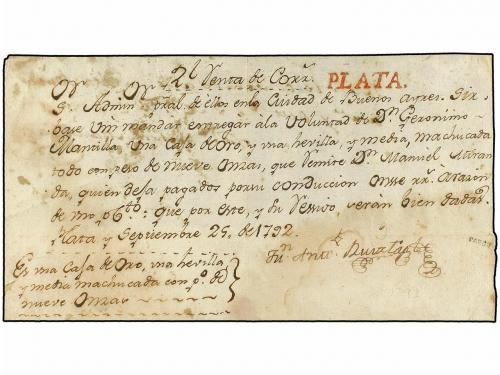 Rl Venta de Corrs. PLATA.
Sr. Admin. pral. de ellos en la Ciudad de Buenos ayres. Sir-
vase Vm mandar entregar à la Voluntad de Dn. Geronimo
Mantilla Una Caja de Oro, y una hevilla, y media, machucada
todo con peso de nueve Onzas, que remite Dn. Manuel Miran
da, quien deja pagados por su conduccion Onse rr. à razon
de uno p6to.: que por este, y su recivo, veran bien dadas.
Plata y Septiembre 25, de 1792.
Jun. Anto. Ruiz Tagle
Es una Caja de Oro, una hevilla
y media machucada con po. de
nueve Onzas